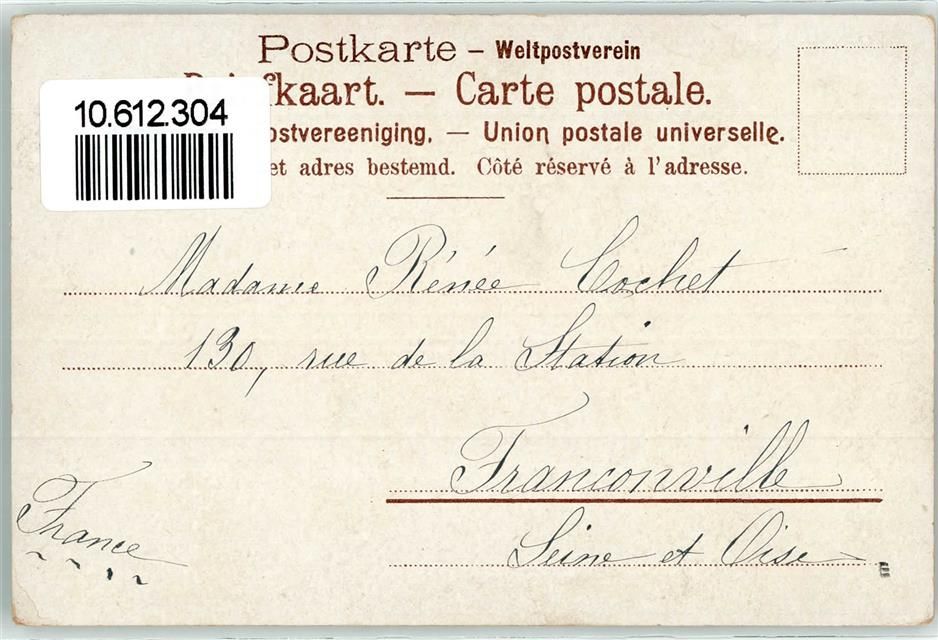 Postkarte – Weltpostverein
fkaart. — Carte postale.
10.612.304
ostvereeniging. — Union postale universelle.
et adres bestemd. Côté réservé à l'adresse.
Madame Rénée Cochet
130, rue de la Station
Franconville
France
Seine et Oise